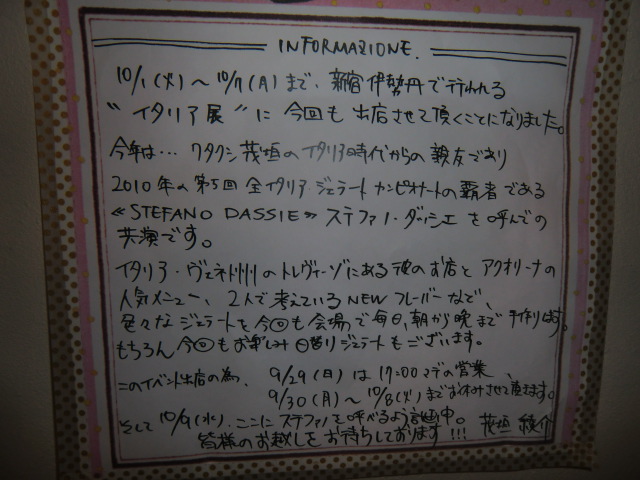 INFORMAZIONE.
10/1(火)〜10/7(月)まで、新宿伊勢丹で行われる
"イタリア展"に今回も出店させて頂くことになりました。
今年は…ワタクシ茂垣のイタリア時代からの親友であり
2010年の第5回全イタリア・ジェラートカンピオナートの覇者である
≪STEFANO DASSIE≫ステファノ・ダッシエを呼んでの
共演です。
イタリア・ヴェネト州のトレヴィーゾにある彼のお店とアクオリーナの
人気メニュー、2人で考えているNEWフレーバーなど、
色々なジェラートを今回も会場で毎日、朝から晩まで手作りします。
もちろん今回もお楽しみ日替りジェラートもございます。
このイベント出店の為、9/29(日)は17:00マデの営業、
9/30(月)〜10/8(火)までお休みさせて頂きます。
そして10/9(水)、ここにステファノを呼べるよう計画中。
皆様のお越しをお待ちしております!!! 茂垣 綾介